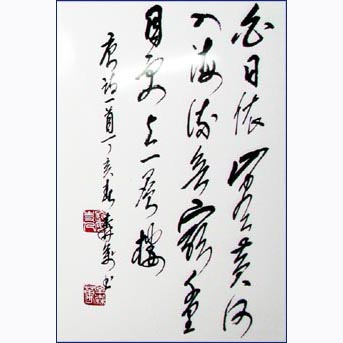 白日依山尽黄河
入海流欲窮千里
目更上一层楼
唐诗一首丁亥春书